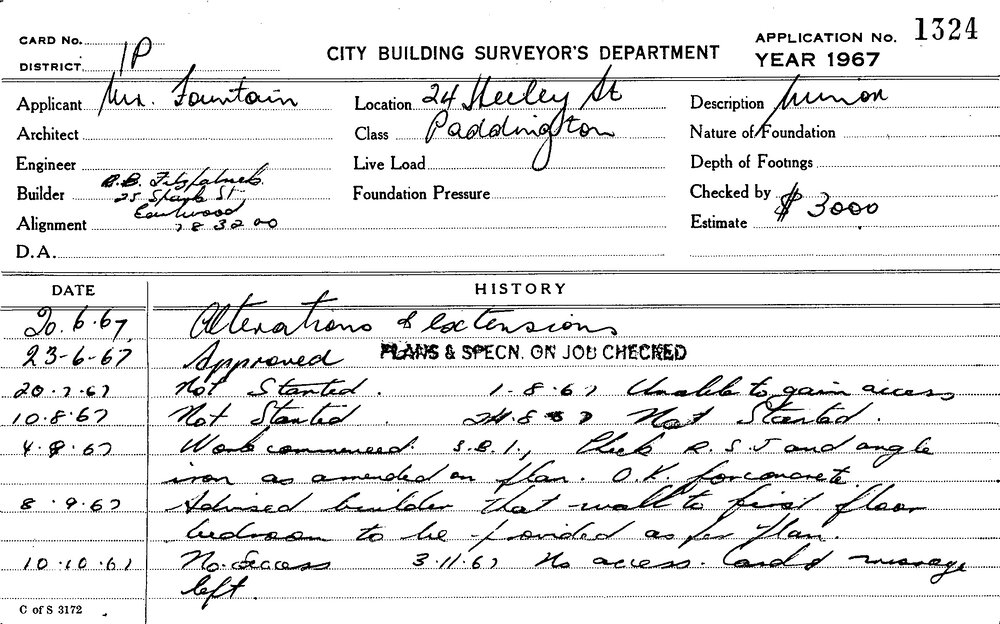 CARD No.
DISTRICT. 1P
CITY BUILDING SURVEYOR'S DEPARTMENT
APPLICATION No. 1324
YEAR 1967
Applicant Mr. Fountain
Architect
Engineer
Builder B.B. Fitzpatrick
25 St
Eastwood
Alignment 78 3200
D.A.
Location 24 Heeley St
Class Paddington
Live Load
Foundation Pressure
Description Minor
Nature of Foundation
Depth of Footings
Checked by
Estimate $ 3000
DATE HISTORY
20.6.67 Alterations & extensions
23-6-67 Approved PLANS & SPECN. ON JOB CHECKED
20.7.67 Not Started. 1-8.67 Unable to gain access
10.8.67 Not Started. 24.8.67 Not Started.
4.9.67 Work commenced. S.B.1., Check R.S.J and angle
iron as amended on plan. O.K. for concrete.
8.9.67 Advised builder that wall to first floor
bedroom to be provided as per plan.
10.10.67 No access 3.11.67 No access. Card & message
left.
C of S 3172